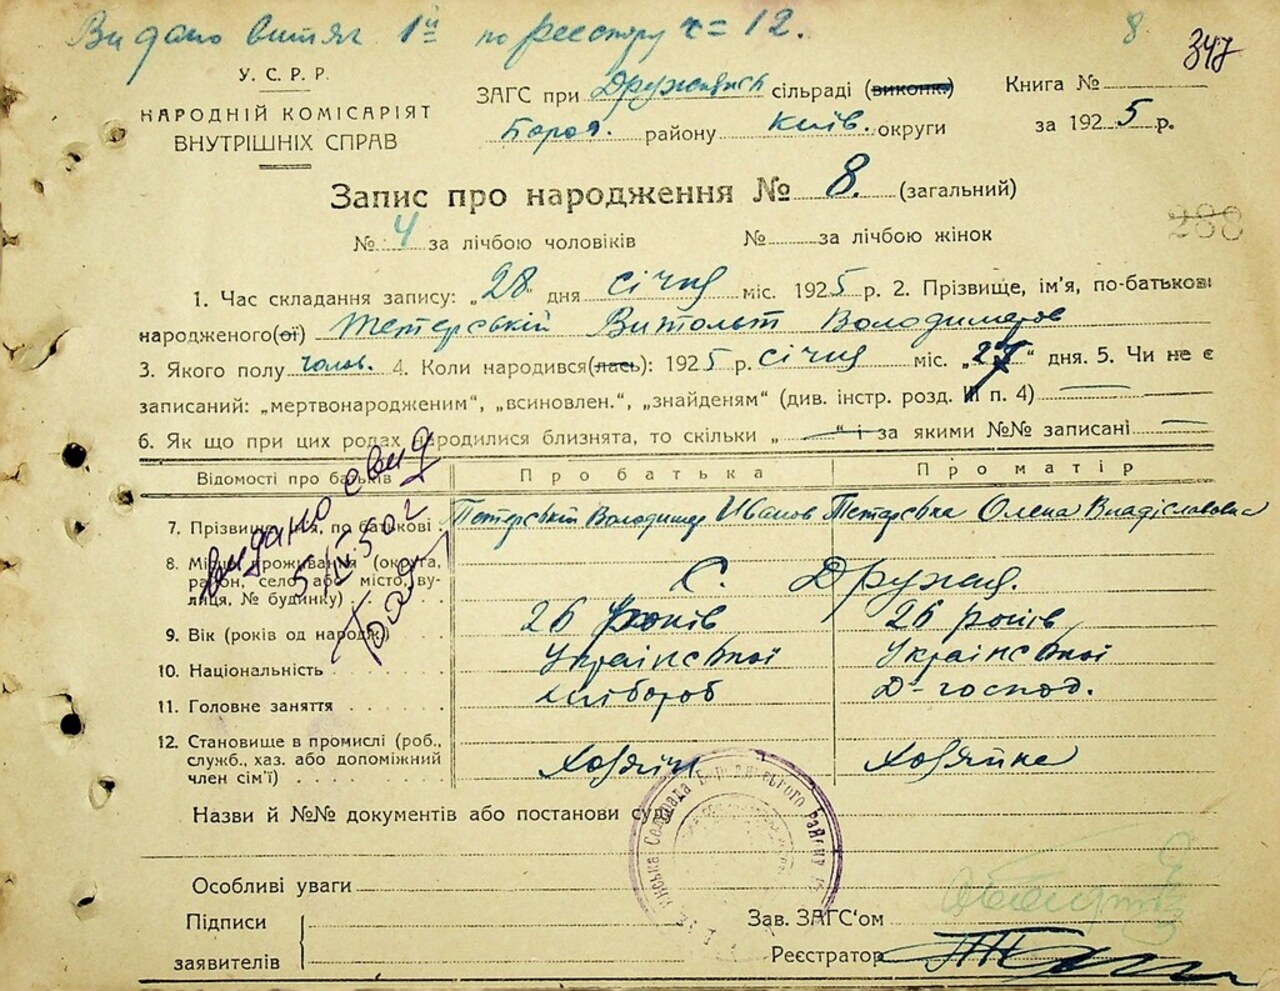 Видано витяг 1й по реєстру № 12.
8
347
У. С. Р. Р.
НАРОДНІЙ КОМІСАРІЯТ
ВНУТРІШНІХ СПРАВ
ЗАГС при сільраді (виконк.)
Бород. району Київ. округи
Книга №
за 1925 р.
Запис про народження № 8. (загальний)
288
№ 4 за лічбою чоловіків № за лічбою жінок
1. Час складання запису: „28" дня січня міс. 1925 р. 2. Прізвище, ім'я, по-батькові
народженого(ої) Тетерській Витольт Володимеров
3. Якого полу чолов. 4. Коли народився(лась): 1925 р. січня міс. „27" дня. 5. Чи не є
записаний: „мертвонародженим", „всиновлен.", „знайденям" (див. інстр. розд. III п. 4)
6. Як що при цих родах народилися близнята, то скільки „ " і за якими №№ записані
Відомості про батьків Про батька Про матір
7. Прізвище, ім'я, по батькові Тетерській Володимер Иванов Тетерська Олена Владіславовна
8. Місце проживання (округа,
район, село або місто, ву-
лиця, № будинку) С. Дружня.
9. Вік (років од народж.) 26 років 26 років
10. Національність Української Української
11. Головне заняття хлібороб Д-господ.
12. Становище в промислі (роб.,
служб., хаз. або допоміжний
член сім'ї) Хозяїн Хозяйка
видано свид
5/IV 50 г
Назви й №№ документів або постанови суду
Особливі уваги
Підписи
заявителів
Зав. ЗАГС'ом
Реєстратор